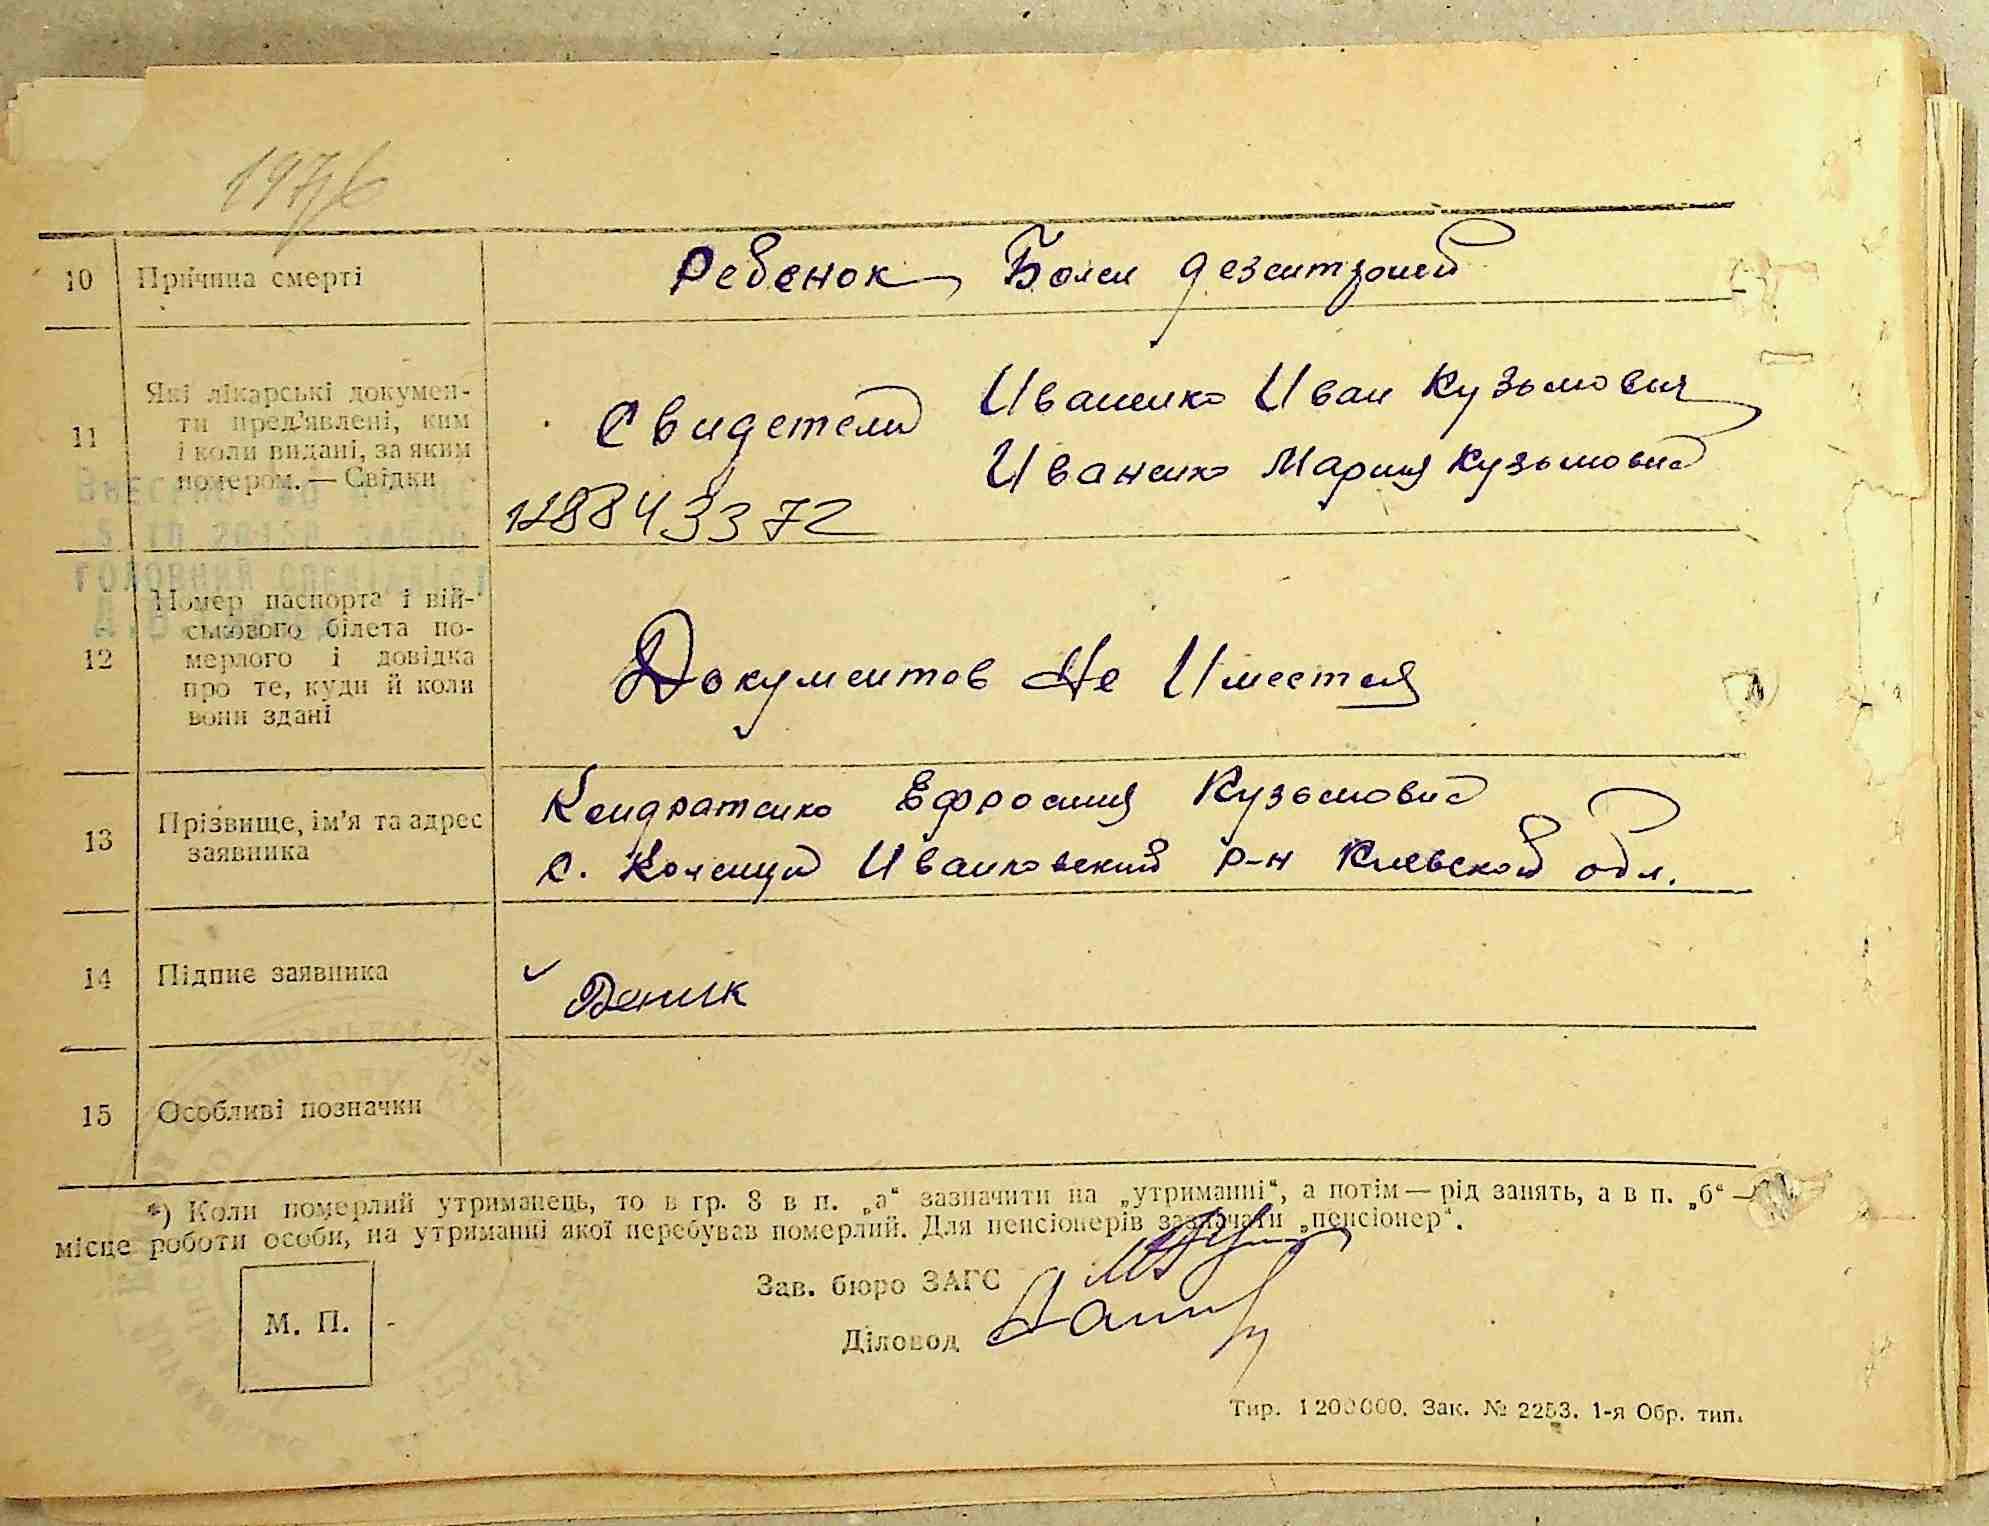 1976
10 Причина смерті Ребенок, Болел дезентрией
11 Які лікарські докумен-
ти пред'явлені, ким
і коли видані, за яким
номером. — Свідки
Свидетели Иваненко Иван Кузьмович
Иваненко Мария Кузьмовна
128843372
12 Номер паспорта і вій-
ськового білета по-
мерлого і довідка
про те, куди й коли
вони здані
Документов Не Имеется
13 Прізвище, ім'я та адрес
заявника
Кондратенко Ефросиния Кузьмовна
с. Коленци Иванковский р-н Киевской обл.
14 Підпис заявника
15 Особливі позначки
*) Коли померлий утриманець, то в гр. 8 в п. „а“ зазначити на „утриманні“, а потім — рід занять, а в п. „б“ —
місце роботи особи, на утриманні якої перебував померлий. Для пенсіонерів зазначати „пенсіонер“.
Зав. бюро ЗАГС
М. П.
Діловод
Тир. 1200000. Зак. № 2253. 1-я Обр. тип.